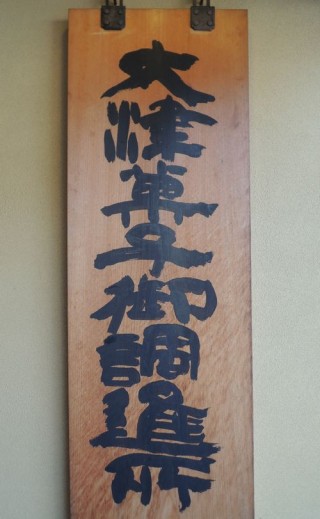 大津菓子御調進所